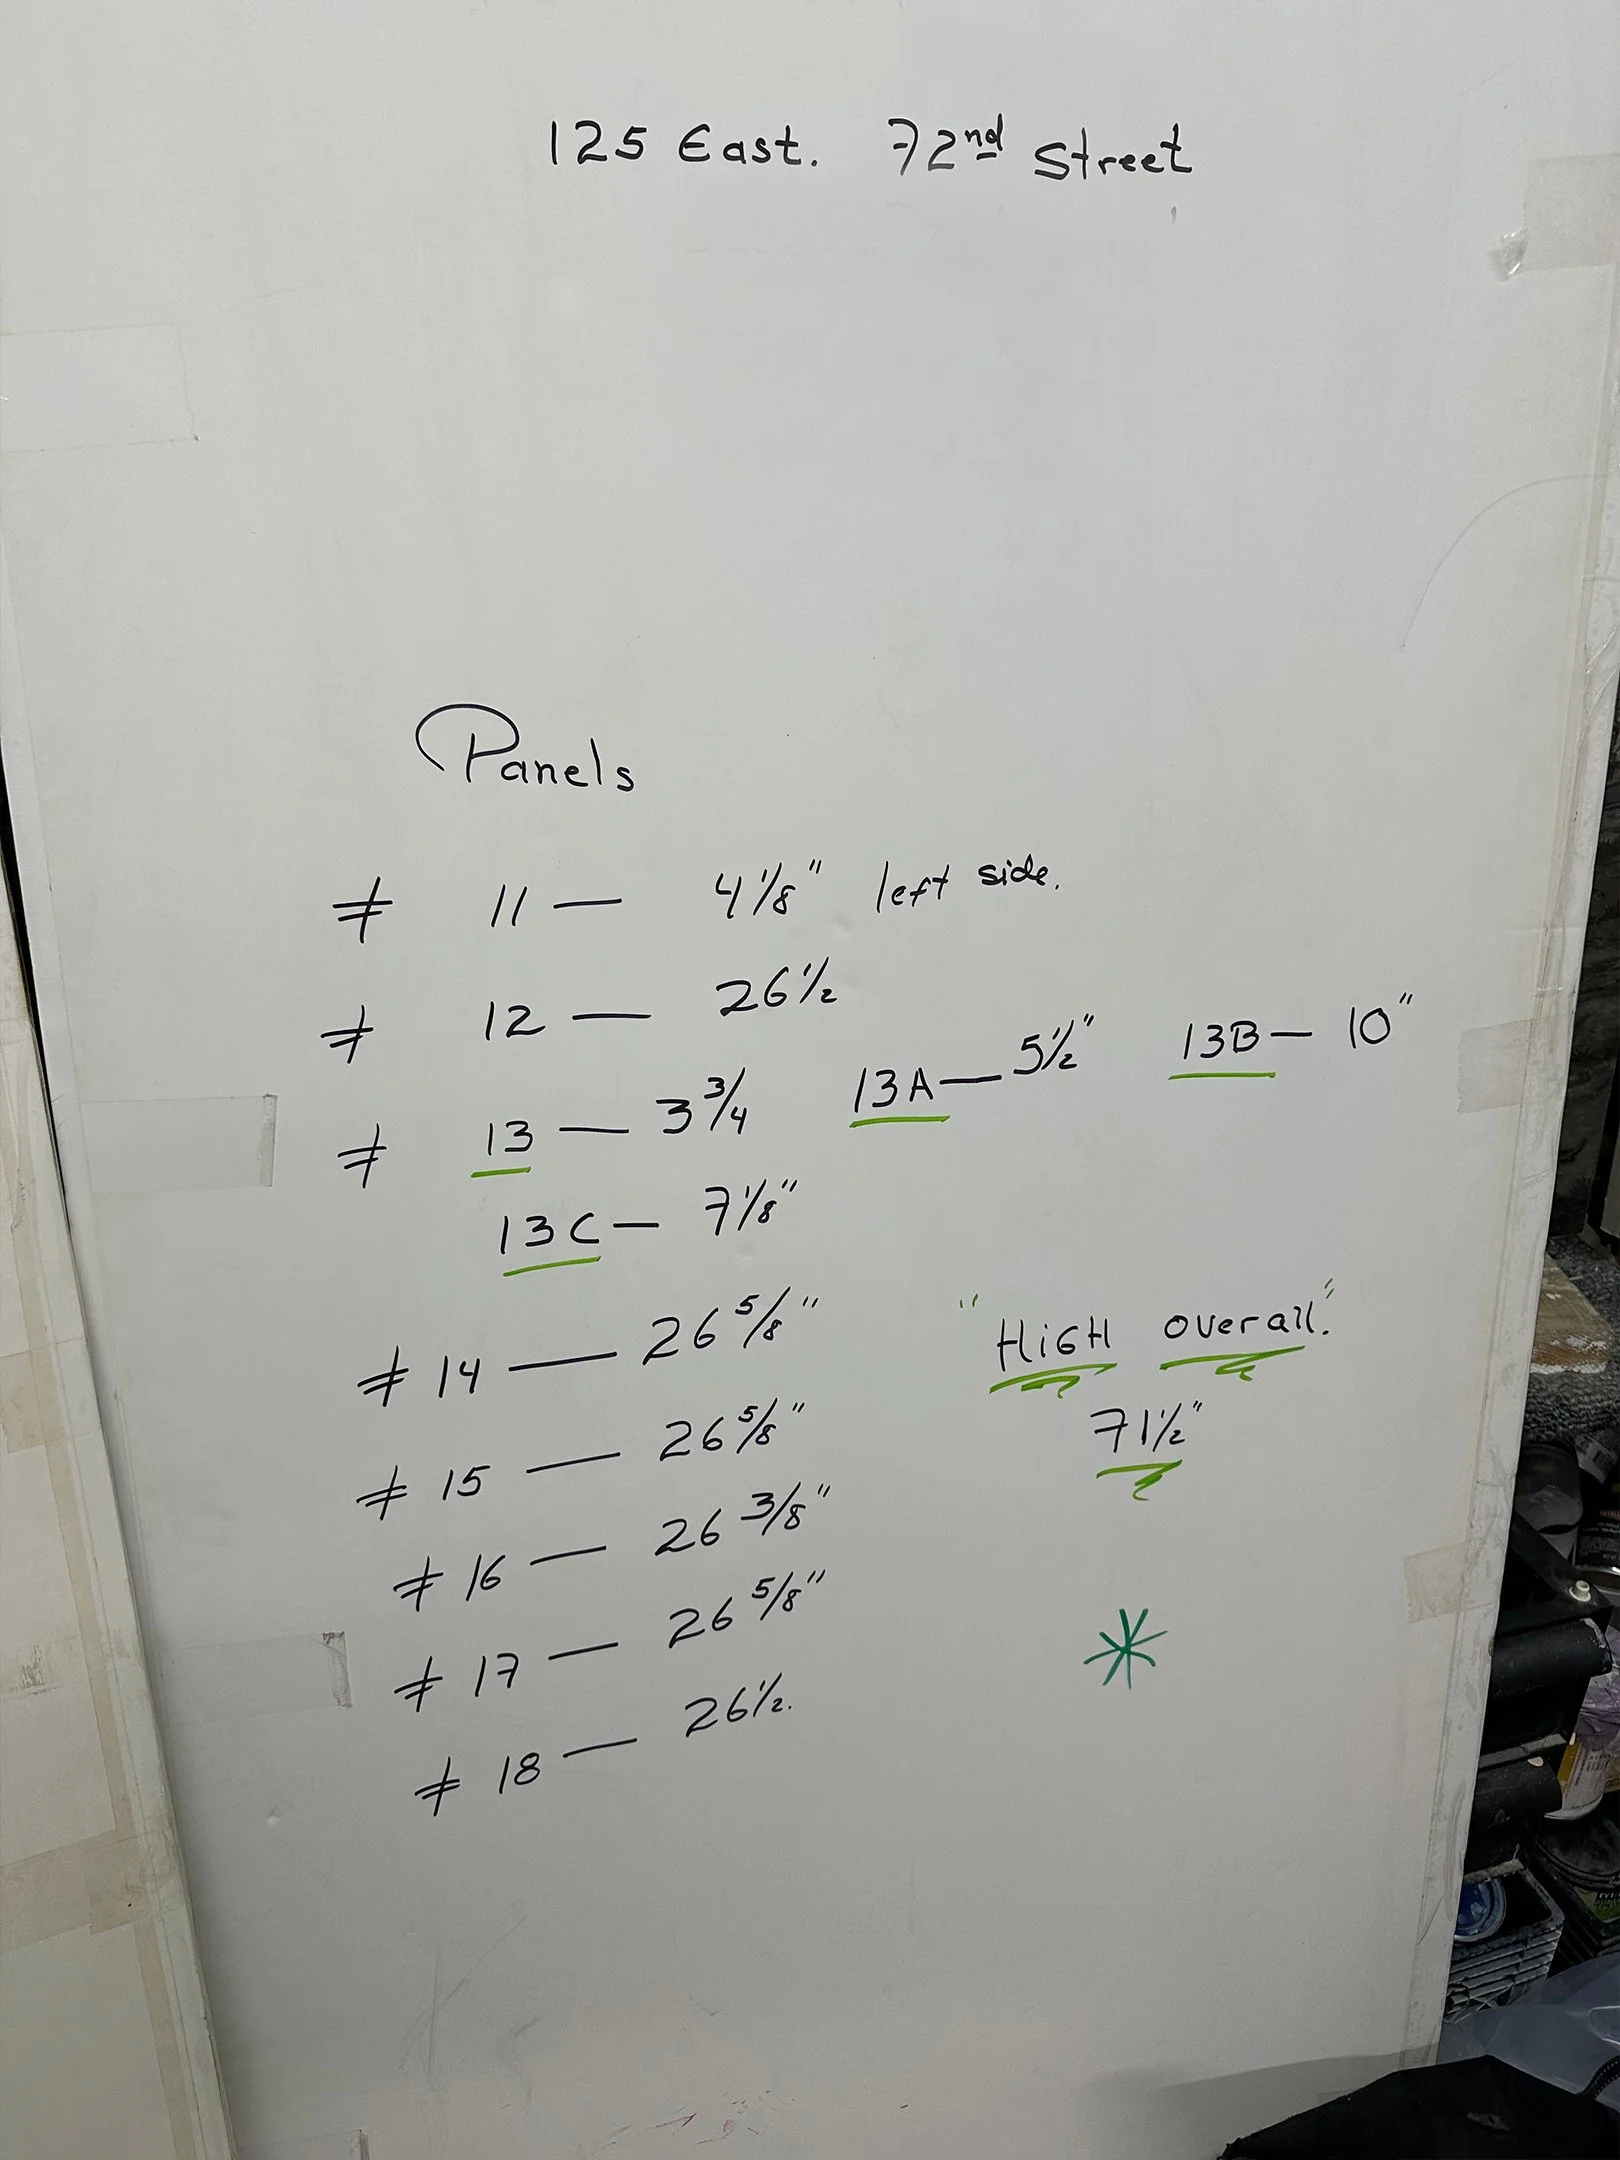 125 East. 72nd Street
Panels
# 11 — 4 1/8" left side.
# 12 — 26 1/2
# 13 — 3 3/4 13A — 5 1/2" 13B — 10"
13C — 7 1/8"
# 14 — 26 5/8" "HiGH overall."
# 15 — 26 5/8" 71 1/2"
# 16 — 26 3/8"
# 17 — 26 5/8"
# 18 — 26 1/2.